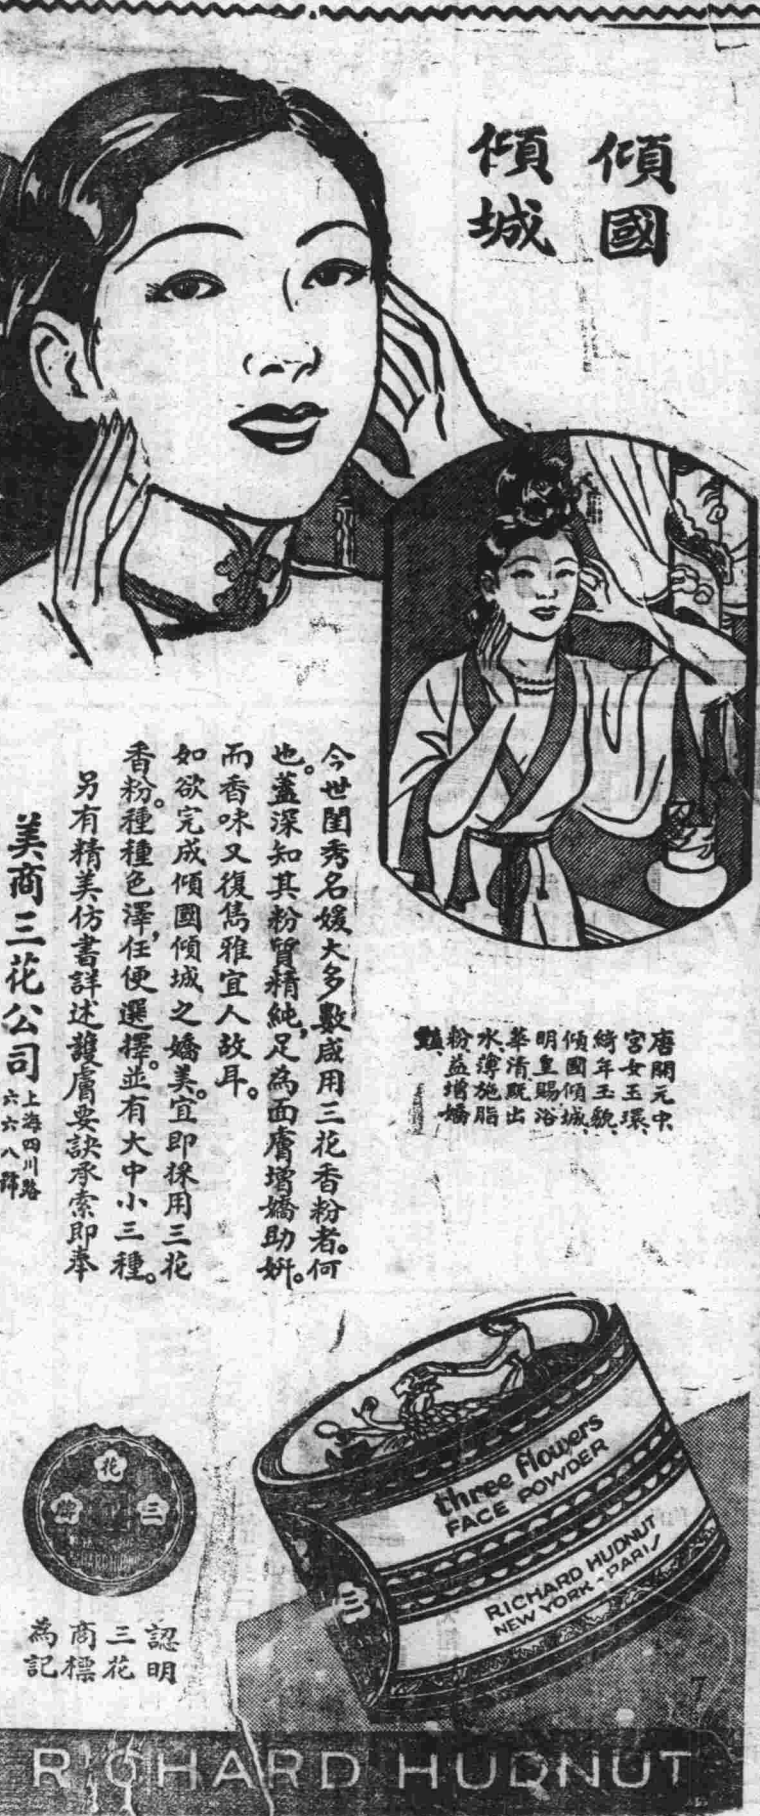 傾國
傾城
唐開元中、
宮女玉環、
綺年玉貌、
傾國傾城、
明皇賜浴
華清既出
水、薄施脂
粉益增嬌
豔、
今世閨秀名媛大多數咸用三花香粉者。何
也。蓋深知其粉質精純，足為面膚增嬌助妍。
而香味又復雋雅宜人故耳。
如欲完成傾國傾城之嬌美。宜即採用三花
香粉。種種色澤，任便選擇。並有大中小三種。
另有精美仿書詳述護膚要訣承索即奉
美商三花公司
上海四川路
六六八號
three flowers
FACE POWDER
RICHARD HUDNUT
NEW YORK - PARIS
三
花
三
認明
三花
商標
為記
7
RICHARD HUDNUT